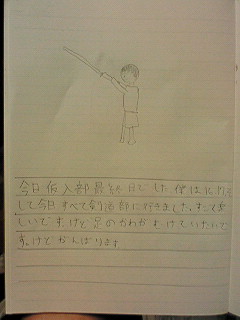 今日仮入部最終日でした。僕は
して今日すべて剣道部に行きました。すごく楽
しいです。けど足のかわがむけていたいで
す。けどがんばります